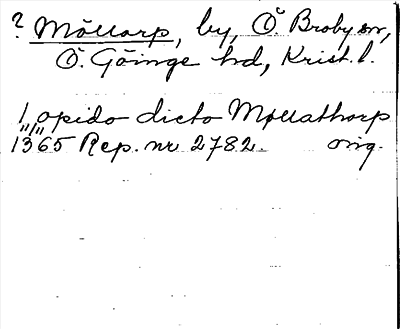 ? Möllarp, by, Ö. Broby sn,
Ö. Göinge hd, Krist. l.
1, opido dicto Møllathorp
1365 Rep. nr 2782. orig.